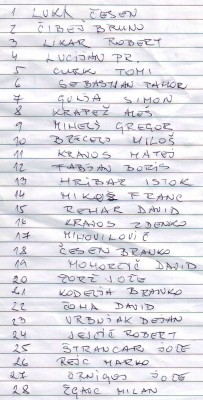 1 LUKA ČESEN
2 ČIBEJ BRUNO
3 LIKAR ROBERT
4 LUCIJAN PR.
5 CURK TOMI
6 SEBASTIAN
7 GULJA SIMON
8 KRAPEŽ ALEŠ
9 MIHELJ GREGOR
10 BRECELJ MILOŠ
11 KRAJOS MATEJ
12 FABJAN BORIS
13 HRIBAR ISTOK
14 MIKOŠ FRANC
15 REHAR DAVID
16 KRAJOS ZDENKO
17 MIHOVILOVIČ
18 ČESEN BRANKO
19 MOHORČIČ DAVID
20 JOŽE
21 KODELJA BRANKO
22 DAVID
23 VRBUŠAK DEJAN
24 JEJČIČ ROBERT
25 ŠTRANCAR JOŽE
26 REJC MARKO
27 ČRNIGOJ JOŽE
28 ŽGAVC MILAN